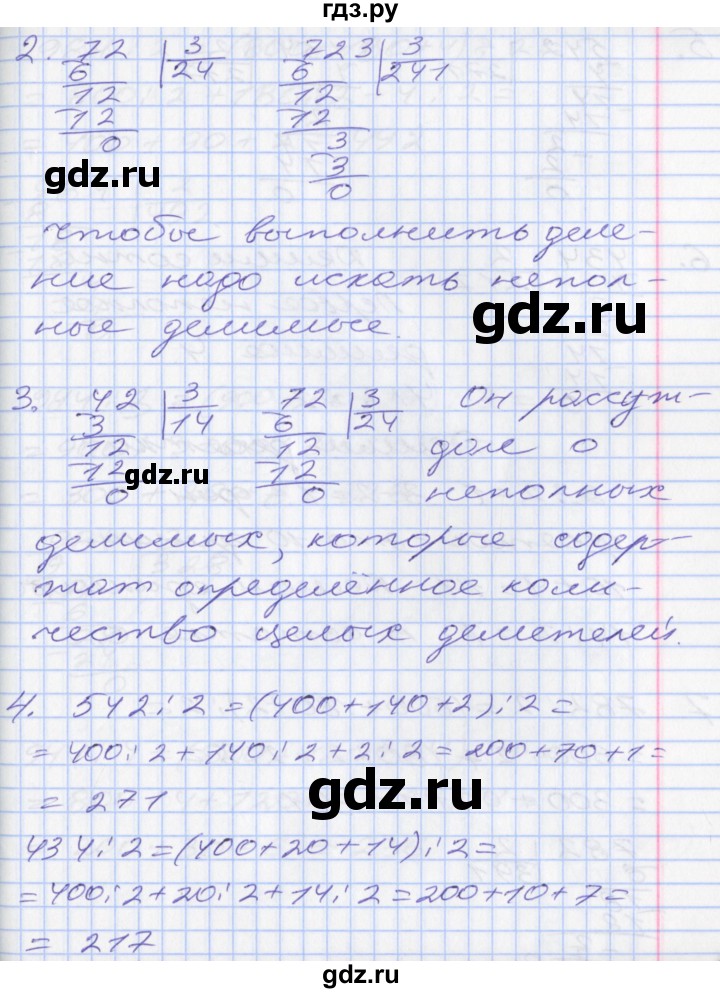 гдз.ру
2. 72 3 723 3
6 24 6 241
12 12
12 12
0 3
3
0
gdz.ru
чтобы выполнить деле-
ние надо искать непол-
ные делимые.
gdz.ru
3. 42 3 72 3 Он рассуж-
3 14 6 24
12 12 дал о
12 12
gdz.ru
0 0 неполных
делимых, которые содер-
жат определённое коли-
чество целых делителей.
4. 542:2=(400+140+2):2=
=400:2+140:2+2:2=200+70+1=
gdz.ru
= 271
434:2=(400+20+14):2=
=400:2+20:2+14:2=200+10+7=
= 217
gdz.ru